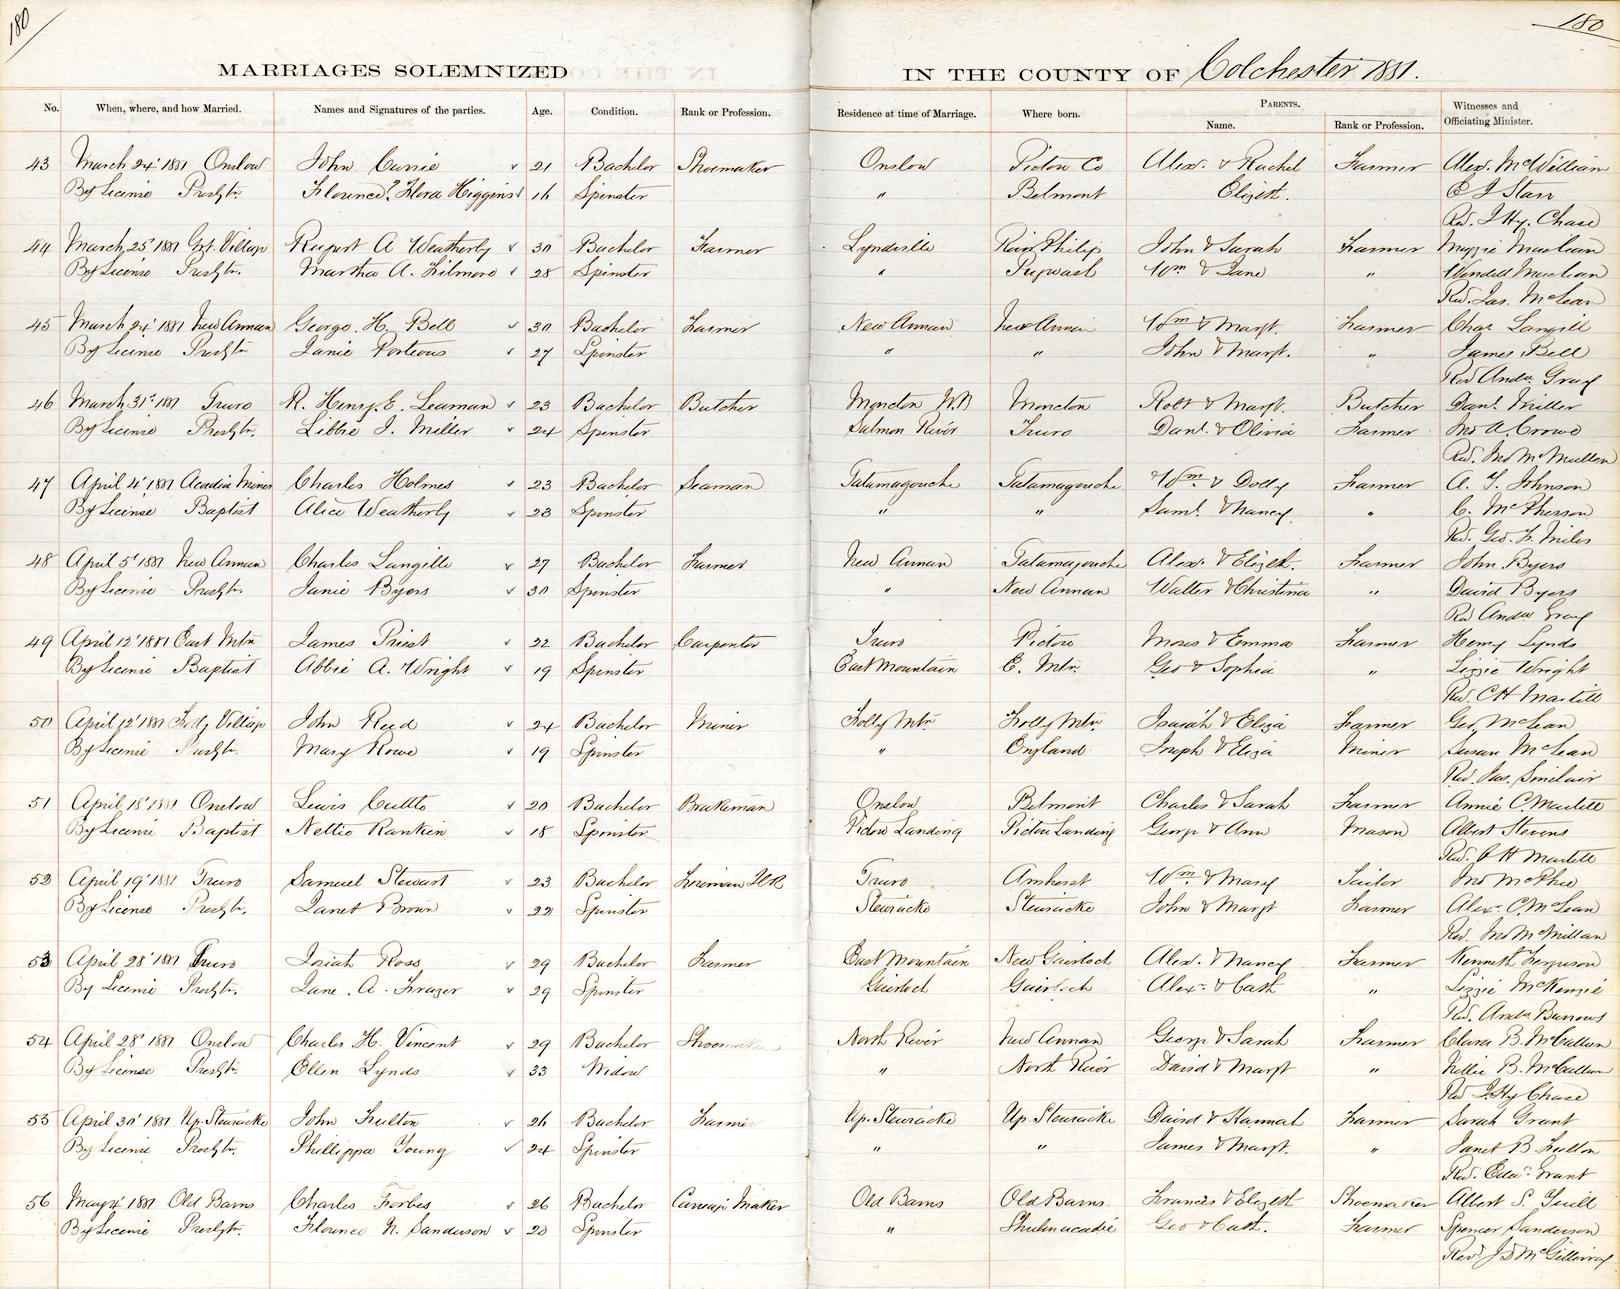 180
180
MARRIAGES SOLEMNIZED
IN THE COUNTY OF Colchester 1881.
No. When, where, and how Married. Names and Signatures of the parties. Age. Condition. Rank or Profession. Residence at time of Marriage. Where born. PARENTS. Name. Rank or Profession. Witnesses and Officiating Minister.
43 March 24' 1881 Onslow John Currie 21 Bachelor Shoemaker Onslow Pictou Co Alex. & Rachel Farmer Alex. McWilliam
By License Presbytn. Florence? Flora Higgins 16 Spinster " Belmont Elizth. E J Starr
Rev. J Hy. Chase
44 March 25' 1881 Grt. Village Rupert A Weatherby 30 Bachelor Farmer Lyndville River Philip John & Sarah Farmer Maggie MacLean
By License Presbytn. Martha A. Filmore 28 Spinster " Pugwash Wm & Jane " Wendell MacLean
Rev. Jas. McLean
45 March 24' 1881 New Annan George. H. Bell 30 Bachelor Farmer New Annan New Annan Wm & Margt. Farmer Chas Langill
By License Presbytn Janie Porteous 27 Spinster " " John & Margt. " James Bell
Rev Andw Gray
46 March 31st 1881 Truro R. Henry. E. Leaman 23 Bachelor Butcher Moncton N.B Moncton Robt & Margt. Butcher Danl. Miller
By License Presbytn. Libbie J. Miller 24 Spinster Salmon River Truro Danl. & Olivia Farmer Jno A. Crowe
Rev. Jno McMullen
47 April 4' 1881 Acadia Mines Charles Holmes 23 Bachelor Seaman Tatamagouche Tatamagouche Wm & Dolly Farmer A. F. Johnson
By License Baptist Alice Weatherby 23 Spinster " " Saml. & Nancy. " C. McPherson
Rev. Geo. F. Miles
48 April 5' 1881 New Annan Charles Langille 27 Bachelor Farmer New Annan Tatamagouche Alex. & Elizth. Farmer John Byers
By License Presbytn. Janie Byers 30 Spinster " New Annan Walter & Christina " David Byers
Rev Andw Gray
49 April 12' 1881 East Mtn James Priest 22 Bachelor Carpenter Truro Pictou Moses & Emma Farmer Henry Lynds
By License Baptist Abbie A. Wright 19 Spinster East Mountain E. Mtn. Geo & Sophia " Lizzie Wright
Rev. C H Martell
50 April 12' 1881 Folly Village John Reed 24 Bachelor Miner Folly Mtn. Folly Mtn. Isaiah & Eliza Farmer Geo, McLean
By License Presbytn. Mary Rowe 19 Spinster " England Joseph & Eliza Miner Susan McLean
Rev. Jas. Sinclair
51 April 18' 1881 Onslow Lewis Cutto 20 Bachelor Brakeman Onslow Belmont Charles & Sarah Farmer Annie C. Martell
By License Baptist Nettie Rankin 18 Spinster Pictou Landing Pictou Landing George & Ann Mason Albert Stevens
Rev. C H Martell
52 April 19' 1881 Truro Samuel Stewart 23 Bachelor Fireman ICR Truro Amherst Wm. & Mary Tailor Jno McPhee
By License Presbytn. Janet Brown 22 Spinster Stewiacke Stewiacke John & Margt Farmer Alex. C. McLean
Rev. Jno McMillan
53 April 28' 1881 Truro Isaiah Ross 29 Bachelor Farmer East Mountain New Gairloch Alex. & Nancy Farmer Kenneth Ferguson
By License Presbytn. Jane. A. Frazer 29 Spinster Gairloch Gairloch Alex. & Cath " Lizzie McKenzie
Rev. Andw Burrows
54 April 28' 1881 Onslow Charles H. Vincent 29 Bachelor Shoemaker North River New Annan George & Sarah Farmer Clara B. McCallum
By License Presbytn. Ellen Lynds 33 Widow " North River David & Margt " Nellie B. McCallum
Rev J. Hy Chase
55 April 30' 1881 Up. Stewiacke John Fulton 26 Bachelor Farmer Up. Stewiacke Up. Stewiacke David & Hannah Farmer Sarah Grant
By License Presbytn. Phillippa Young 24 Spinster " " James & Margt. " Janet B Fulton
Rev. Edwd. Grant
56 May 4' 1881 Old Barns Charles Forbes 26 Bachelor Carriage Maker Old Barns Old Barns Francis & Elizth Shoemaker Albert S. Yuill
By License Presbytn. Florence N. Sanderson 20 Spinster " Shubenacadie Geo & Cath. Farmer Spencer Sanderson
Revd J D McGillivray